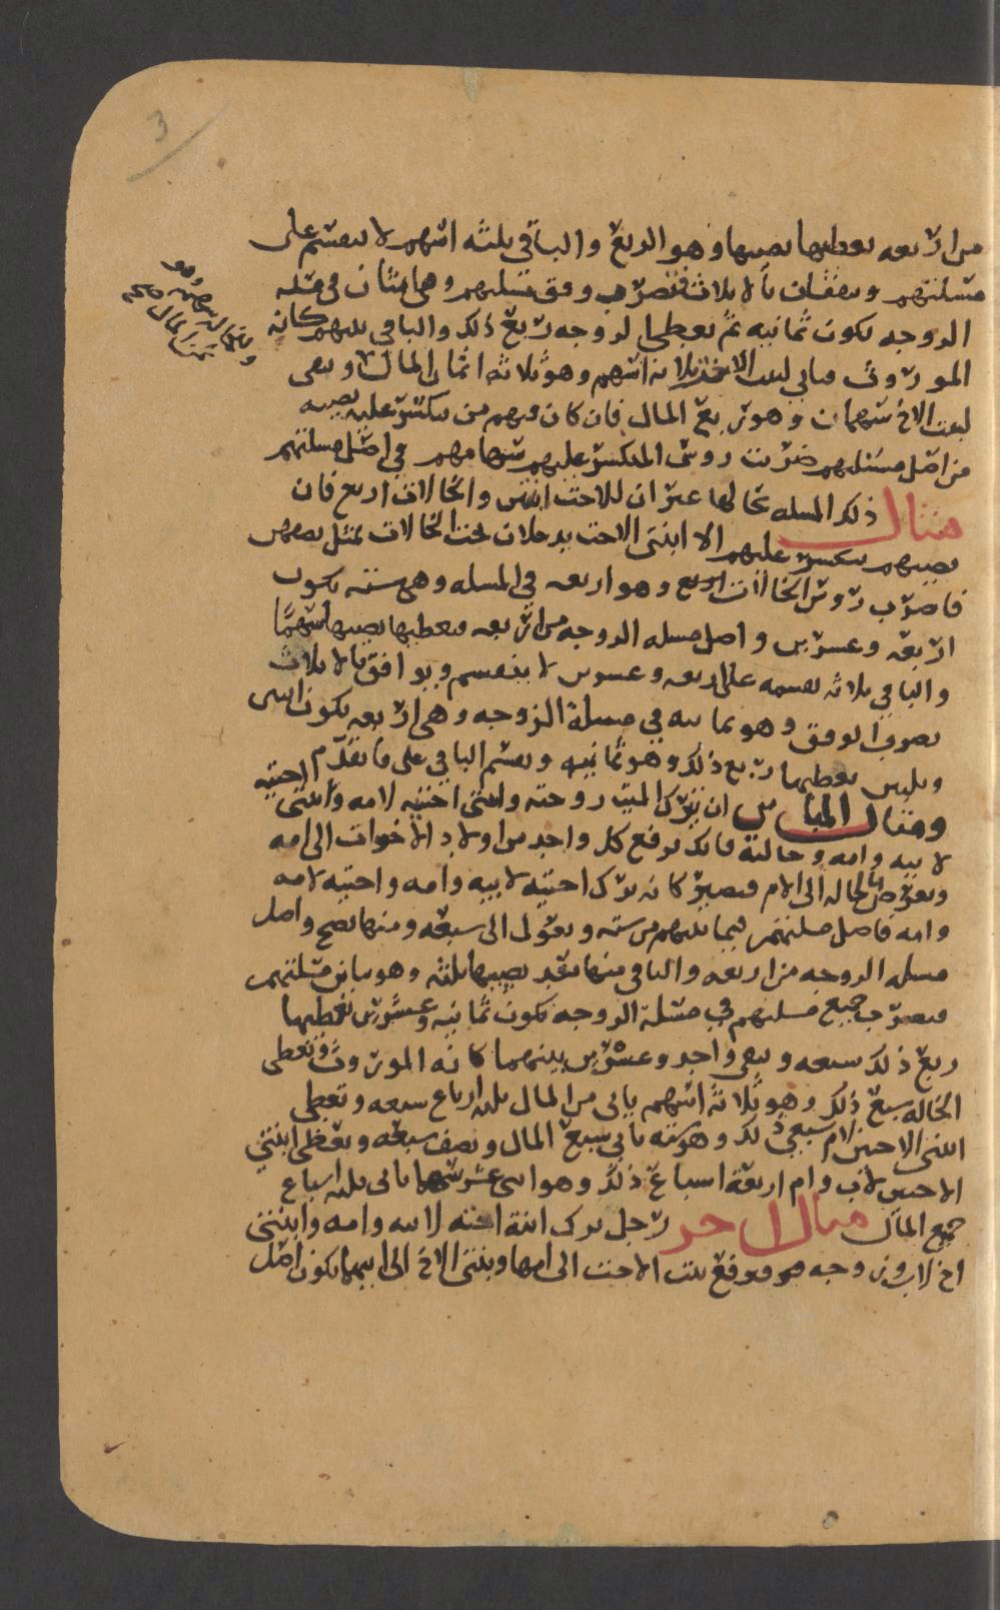 3
من اربعه يعطيها نصيبها وهو الربع والباقي ثلثه اسهم لا ينقسم على
مسلتهم ويتفقان بالاثلاث فتضرب وفق مسلتهم وهي اثنان في مسله
الزوجه يكون ثمانيه ثم يعطى الزوجه ربع ذلك والباقي بينهم كانه
الموروث فياتي لبنت الاخت ثلاثه اسهم وهو ثلاثه اثمان المال ويبقى
لبنت الاخ سهمان وهو ربع المال فان كان فيهم من ينكسر عليه نصيبه
من اصل مسلتهم ضربت روس المنكسر عليهم سهامهم في اصل مسلتهم
مثال ذلك المسله بحالها غير ان للاخت ابنتين والخالات اربع فان
نصيبهم ينكسر عليهم الا ابنتي الاخت يدخلان تحت الخالات
فاضرب روس الخالات اربع وهو اربعه في المسله وهي سته يكون
اربعه وعشرين واصل مسله الزوجه من اربعه فيعطيها نصيبها سهما
والباقي ثلاثه نقسمه على اربعه وعشرين لا ينقسم ويوافق بالاثلاث
تضرب الوفق وهو ثمانيه في مسلة الزوجه وهي اربعه يكون اثنين
وثلثين يعطيها ربع ذلك وهو ثمانيه ويقسم الباقي على ما تقدم
ومثال المباين ان يترك الميت زوجته وابنتي اختيه لامه وابنتي اختيه
لابيه وامه وخالته فانك ترفع كل واحد من اولاد الاخوات الى امه
وتعرض بالخاله الى الام فيصير كانه ترك اختيه لابيه وامه واختيه لامه
وامه فاصل مسلتهم فيما بينهم من سته وتعول الى سبعه ومنها تصح واصل
مسله الزوجه من اربعه والباقي منها بعد نصيبها ثلثه وهو مباين مسلتهم
فيضرب جميع مسلتهم في مسئلة الزوجه تكون ثمانيه وعشرين نعطيها
ربع ذلك سبعه ويبقى واحد وعشرين بينهما كانه الموروث ونعطى
الخاله سبع ذلك وهو ثلاثه اسهم ياتي من المال ثلثه ارباع سبعه وتعطي
ابنتي الاختين لام سبعي ذلك وهو سته ياتي سبع المال ونصف سبعه وتعطى ابنتي
الاختين لاب وام اربعة اسباع ذلك وهو اثنى عشر سهما ياتي ثلثه اسباع
جميع المال مثال اخر رجل ترك ابنة اخته لابيه وامه وابنتي
اخ لاب وزوجه فترفع بنت الاخت الى امها وبنتي الاخ الى ابيهما يكون اصل